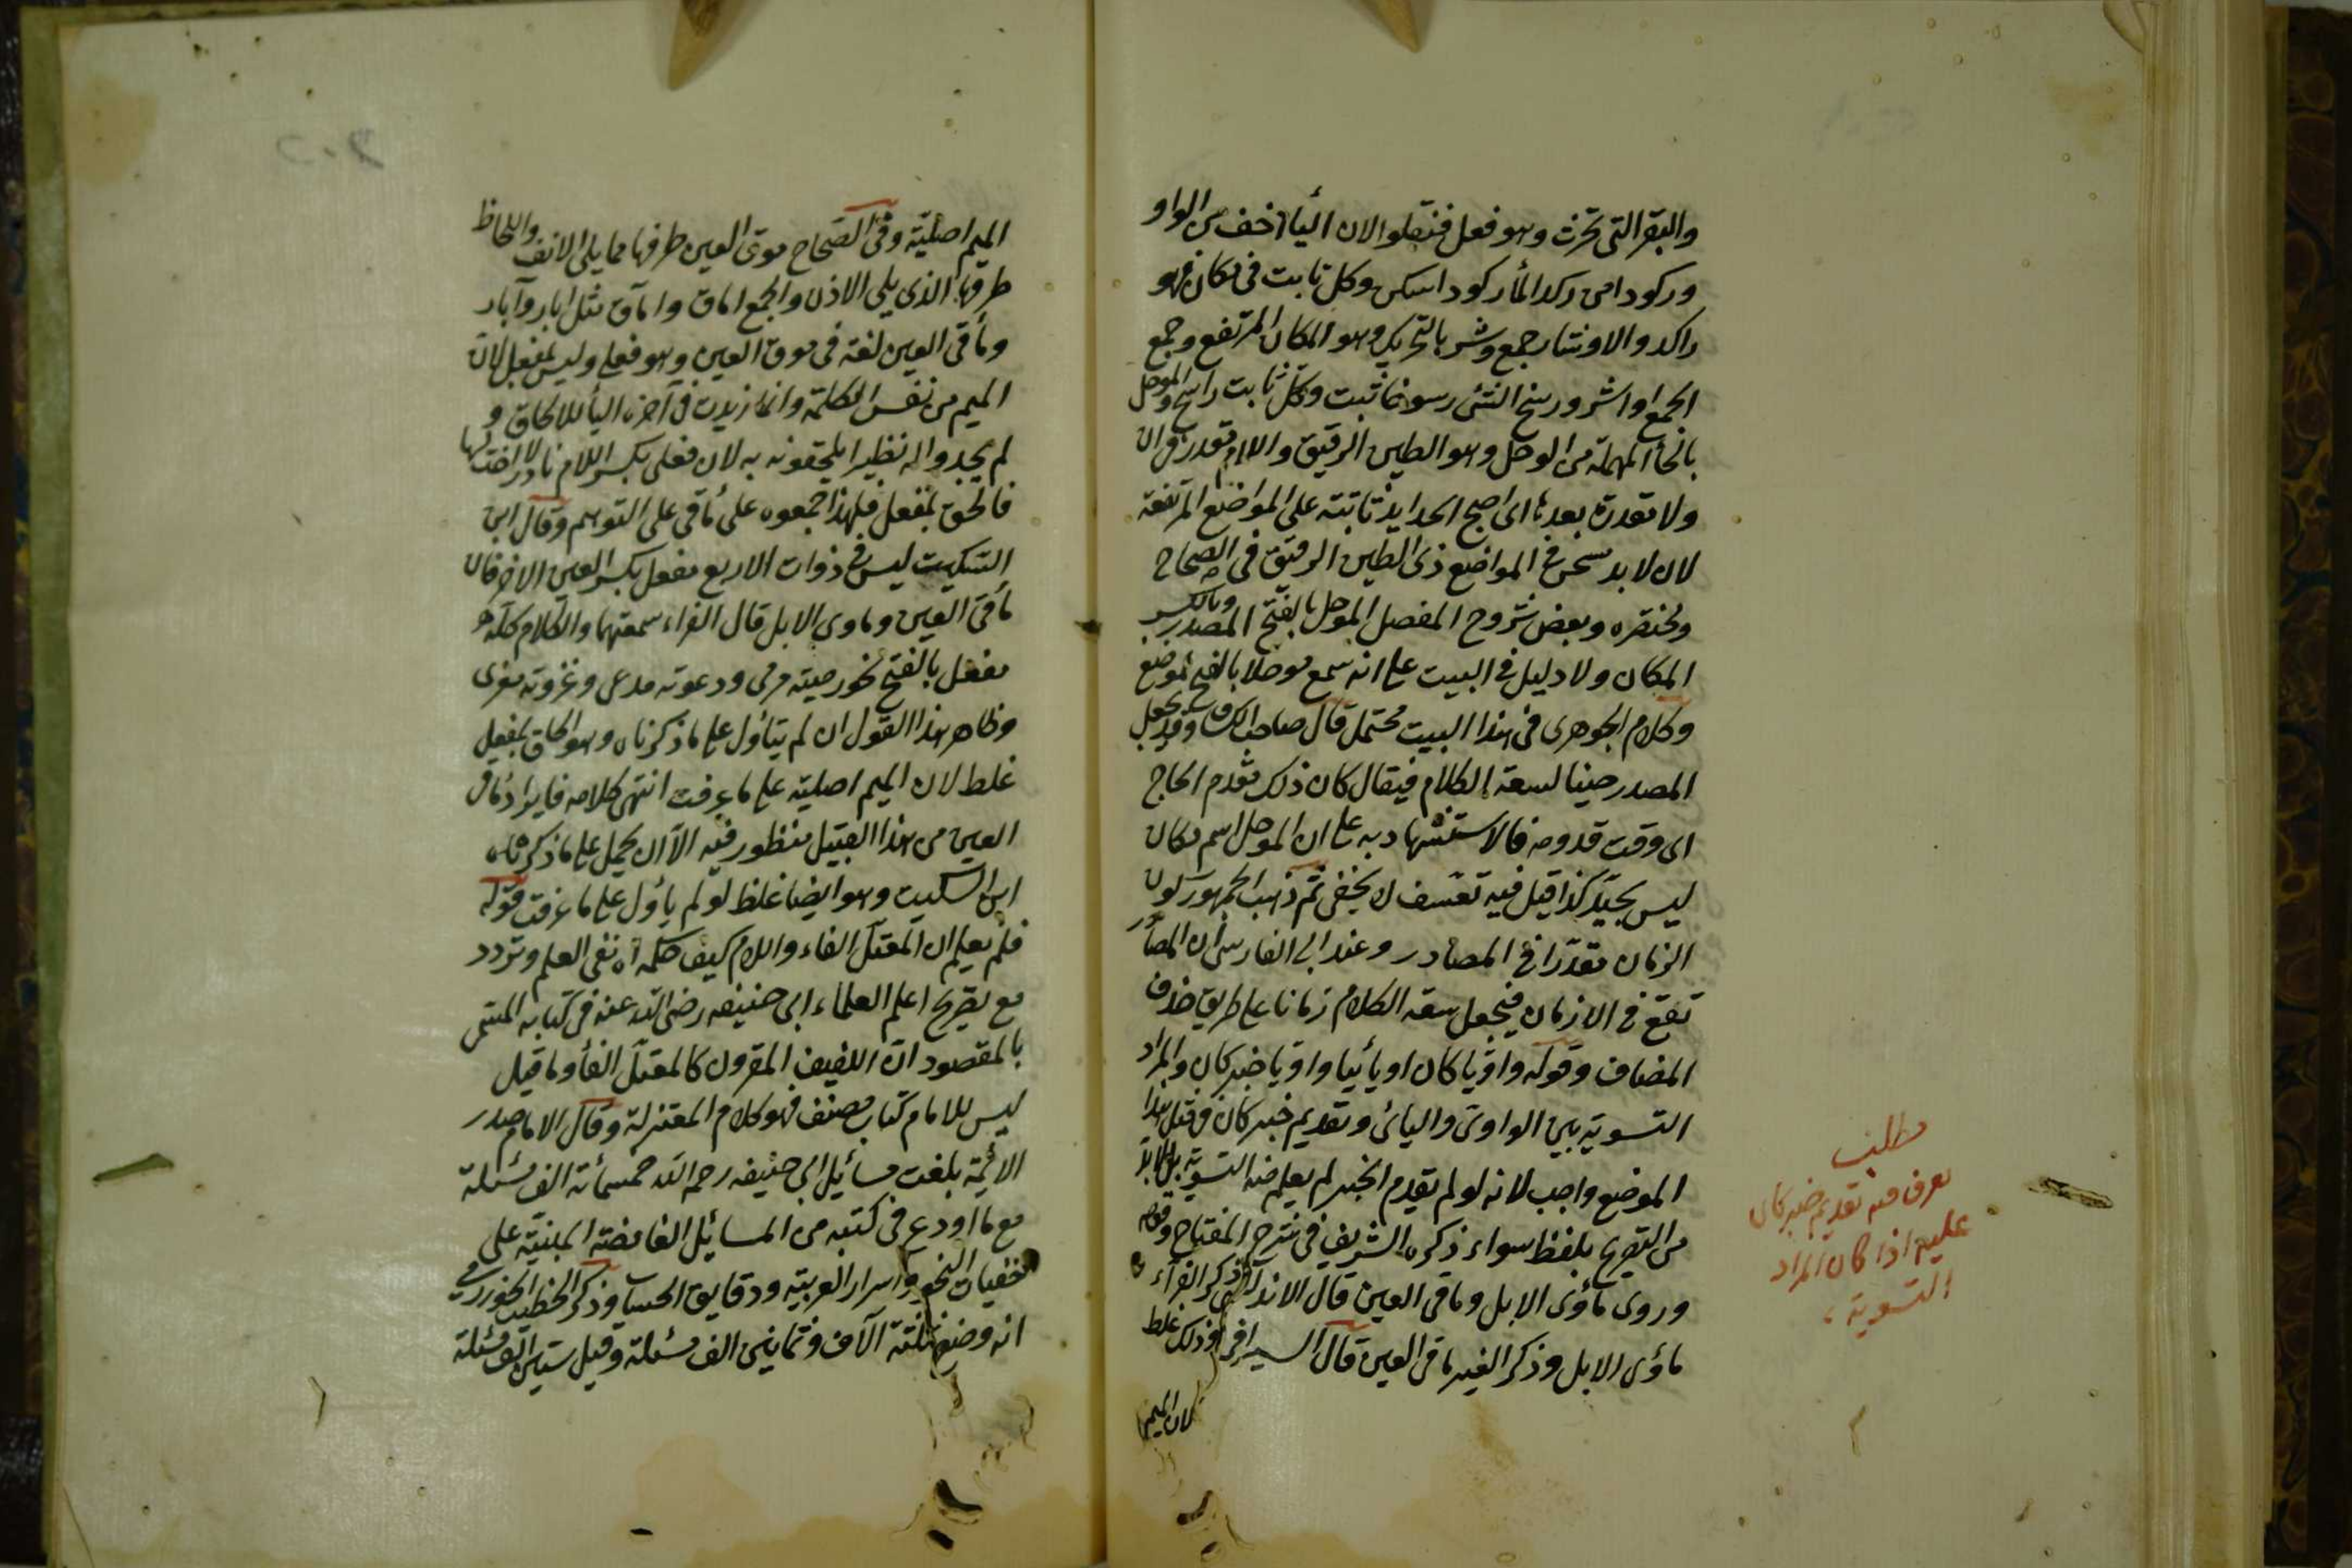 والبقر التى تحرث وهو فعل فنقلوا الان اليأ اخف من الواو
وركود امن ركد المأ ركودا سكن وكل ثابت فى مكان فهو
راكد والاوشار جمع وشر بالتحريك وهو المكان المرتفع وجمع
الجمع اواشر ورسخ الشئ رسوخا ثبت وكل ثابت راسخ والموحل
بالحأ المهملة من الوحل وهو الطين الرقيق واللام مقدر وان
ولا مقدرة بعدها اى اصبح ثابتة على المواضع المرتفعة
لان لا بد فى المواضع ذى الطين الرقيق فى الصحاح
ومختصره وبعض شروح المفصل الموحل بالفتح المصدر وبالكسر
المكان ولا دليل فى البيت على انه سمع موحلا بالفتح لموضع
وكلام الجوهرى فى هذا البيت محتمل قال صاحب وقد يجعل
المصدر حينا لسعة الكلام فيقال كان ذلك مقدم الحاج
اى وقت قدومه فالاستشهاد به على ان الموحل اسم مكان
ليس بجيد كذا قيل فيه تعسف لا يخفى ثم ذهب الجمهور لون
الزمان مقدرا فى المصادر وعند ابى الفارسى ان المصادر
تقع فى الازمان فيجعل سعة الكلام زمانا على طريق حذف
المضاف وقوله واويا كان او يائيا واويا خبر كان والمراد
التسوية بين الواوى واليائى وتقديم خبر كان فى مثل هذا
الموضع واجب لانه لو لم يقدم الخبر لم يعلم منه التسوية بل لابد
من التصريح بلفظ سواء ذكره الشريف فى شرح المفتاح وقوله
وروى مأوى الابل وماقى العين قال الاندلسى ذكر الفرآء
مأوى الابل وذكر الغير ماقى العين قال السيرافى وذلك غلط
لان الميم
مطلب
يعرف منه تقديم خبر كان
عليه اذا كان المراد
التسوية
الميم اصلية وفى الصحاح موق العين طرفها مما يلى الانف واللحاظ
طرفها الذى يلى الاذن والجمع اماق وامآق مثل ابار وآبار
ومأقى العين لغة فى موق العين وهو فعلى وليس بمفعل لان
الميم من نفس الكلمة وانما زيدت فى آخره اليأ للالحاق و
لم يجدوا له نظيرا يلحقونه به لان فعلى بكسر اللام نادر لا اخت لها
فالحق بمفعل فلهذا جمعوه على مأقى على التوهم وقال ابن
السكيت ليس فى ذوات الاربع مفعل بكسر العين الا حرفان
مأقى العين وماوى الابل قال الفراء سمعتهما والكلام كله
مفعل بالفتح نحو رميته مرمى ودعوته مدعى وغزوته مغزى
وظاهر هذا القول ان لم يتأول على ما ذكرناه وهو الحاق بمفعل
غلط لان الميم اصلية على ما عرفت انتهى كلامه فايراد مأقى
العين من هذا القبيل منظور فيه الا ان يحمل على ما ذكرناه
ابن السكيت وهو ايضا غلط لو لم يأول على ما عرفت قوله
فلم يعلم ان المعتل الفاء واللام كيف حكمه اه نفى العلم وتردد
مع تصريح اعلم العلماء ابى حنيفه رضى الله عنه فى كتابه المسمى
بالمقصود ان اللفيف المقرون كالمعتل الفأ وما قيل
ليس للامام كتاب مصنف فهو كلام المعتزلة وقال الامام صدر
الائمة بلغت مسائيل ابى حنيفه رحمه الله خمسمائة الف مسئلة
مع ما اودع فى كتبه من المسائيل الغامضة المبنية على
خفيات النحو واسرار العربية ودقايق الحساب وذكر الخطيب الخورزمى
انه وضع ثلثة الآف وثمانين الف مسئلة وقيل ستين الف مسئلة